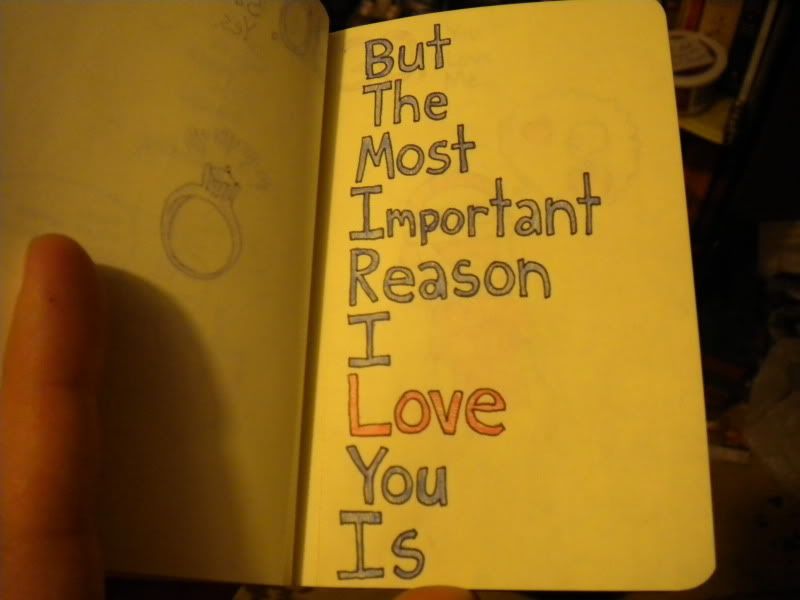 But
The
Most
Important
Reason
I
Love
You
Is